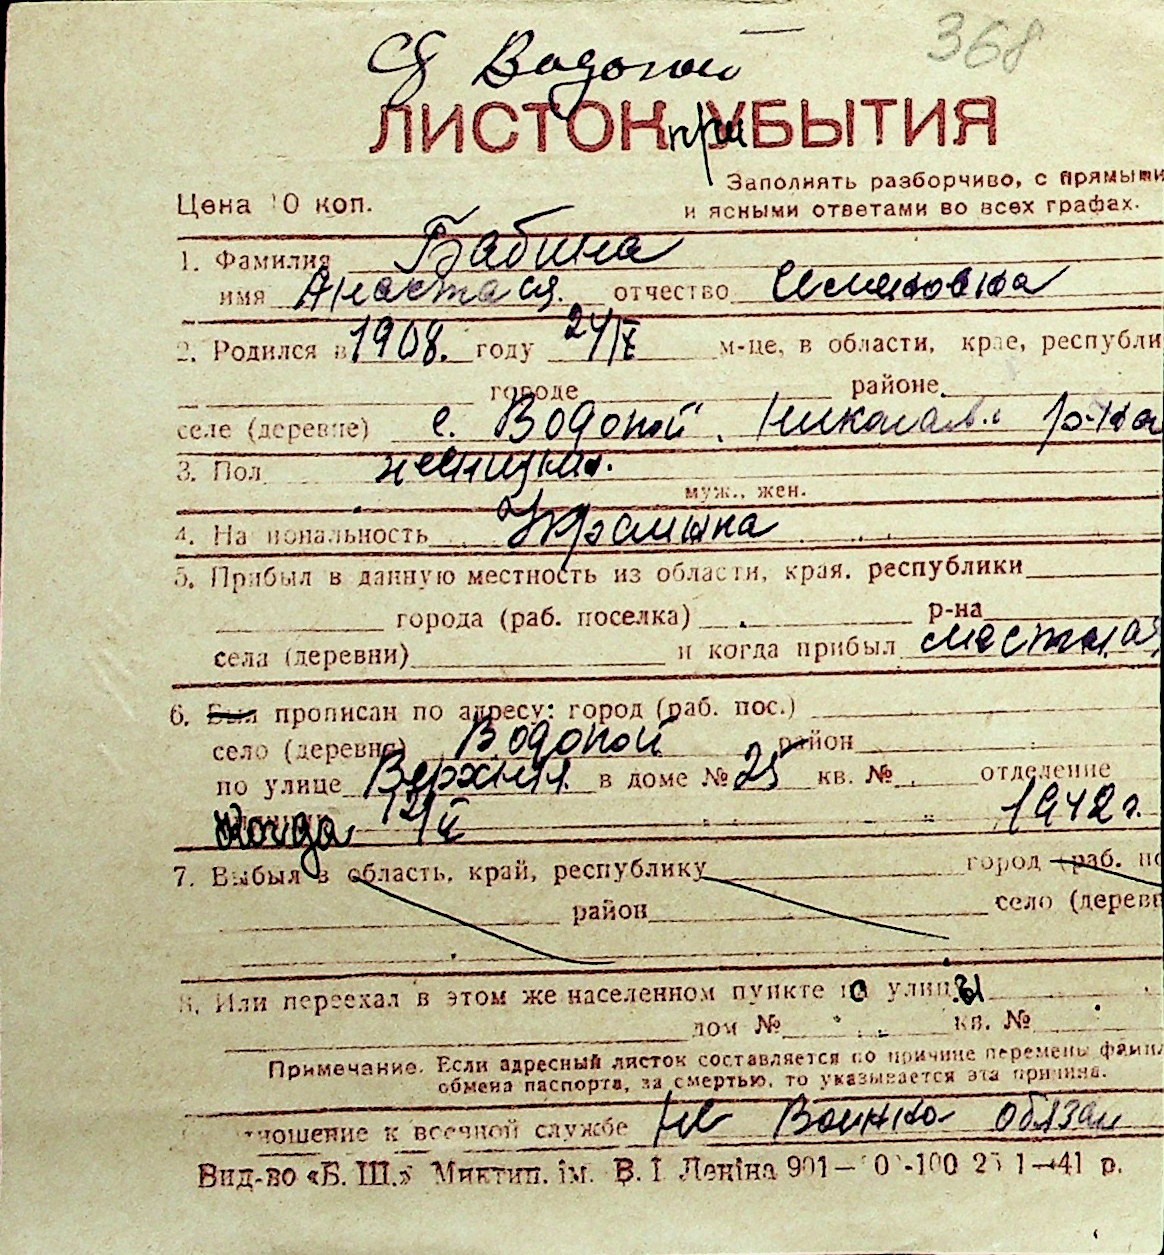 368
с Водопой
ЛИСТОК при УБЫТИЯ
Заполнять разборчиво, с прямыми
Цена 10 коп.
и ясными ответами во всех графах.
1. Фамилия Бабина
имя Анастасия отчество Семеновна
2. Родился в 1908. году 24/X м-це, в области, крае, республи
городе районе
селе (деревне) с. Водопой, Николаев. р-на
3. Пол женский.
муж., жен.
4. Национальность Украинка
5. Прибыл в данную местность из области, края, республики
города (раб. поселка) р-на
села (деревни) и когда прибыл местная
6. Был прописан по адресу: город (раб. пос.)
село (деревне) Водопой район
по улице Верхняя в доме № 25 кв. № отделение
когда 12/II 1942 г.
7. Выбыл в область, край, республику город (раб. по
район село (дерев
8. Или переехал в этом же населенном пункте с улицы
дом № кв. №
Примечание. Если адресный листок составляется по причине перемены фамил
обмена паспорта, за смертью, то указывается эта причина.
Отношение к военной службе не Воинно обязан
Вид-во «Б. Ш.» Миктип. ім. В. І. Леніна 901— 0-100 25 1—41 р.